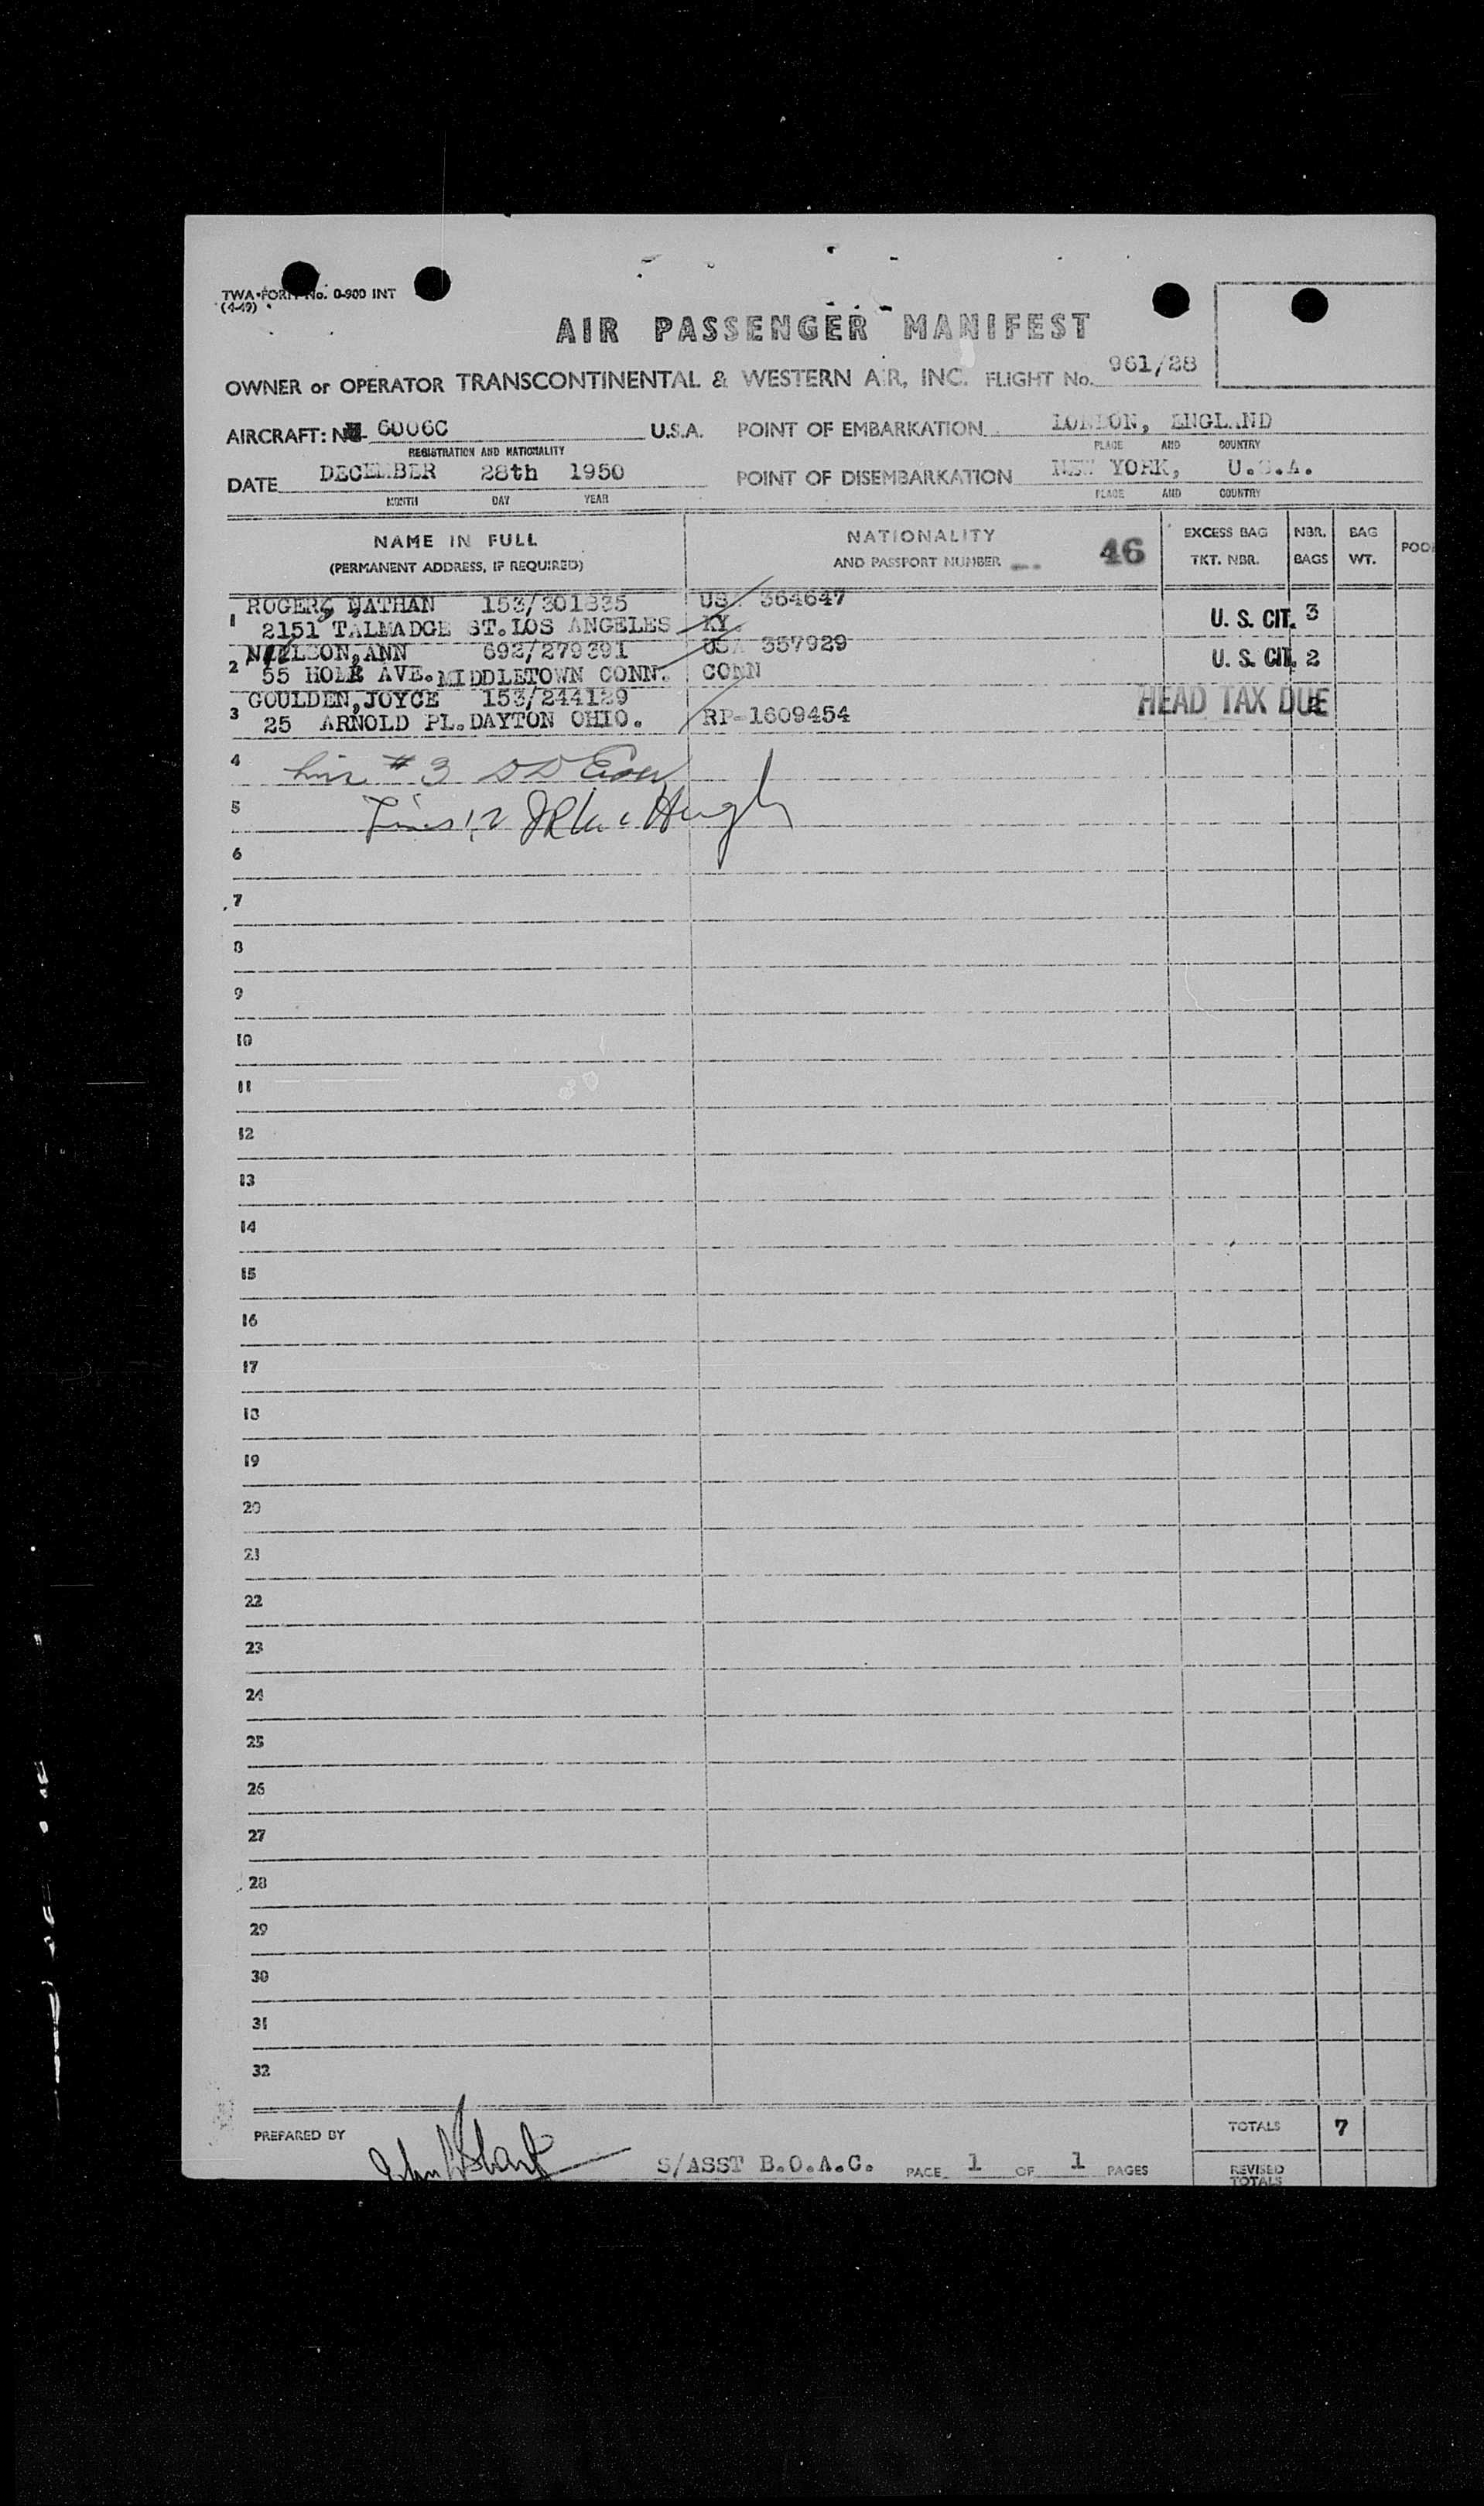 TWA-FORM No. 0-900 INT
(4-49)
AIR PASSENGER MANIFEST
OWNER or OPERATOR TRANSCONTINENTAL & WESTERN AIR, INC. FLIGHT No. 961/28
AIRCRAFT: 6006C U.S.A. POINT OF EMBARKATION LONDON, ENGLAND
REGISTRATION AND NATIONALITY PLACE AND COUNTRY
DATE DECEMBER 28th 1950 POINT OF DISEMBARKATION NEW YORK, U.S.A.
MONTH DAY YEAR PLACE AND COUNTRY
NAME IN FULL NATIONALITY 46 EXCESS BAG NBR. BAG
(PERMANENT ADDRESS, IF REQUIRED) AND PASSPORT NUMBER TKT. NBR. BAGS WT.
1 ROGERS NATHAN 153/301835 USA 364647
2151 TALMADGE ST. LOS ANGELES KY. U. S. CIT. 3
2 ANN 692/279391 USA 357929
55 AVE. MIDDLETOWN CONN. CONN U. S. CIT. 2
3 GOULDEN, JOYCE 153/244129 HEAD TAX DUE 2
25 ARNOLD PL. DAYTON OHIO. RP-1609454
4 # 3
5
6
7
8
9
10
11
12
13
14
15
16
17
18
19
20
21
22
23
24
25
26
27
28
29
30
31
32
PREPARED BY TOTALS 7
S/ASST B.O.A.C. PAGE 1 OF 1 PAGES REVISED
TOTALS